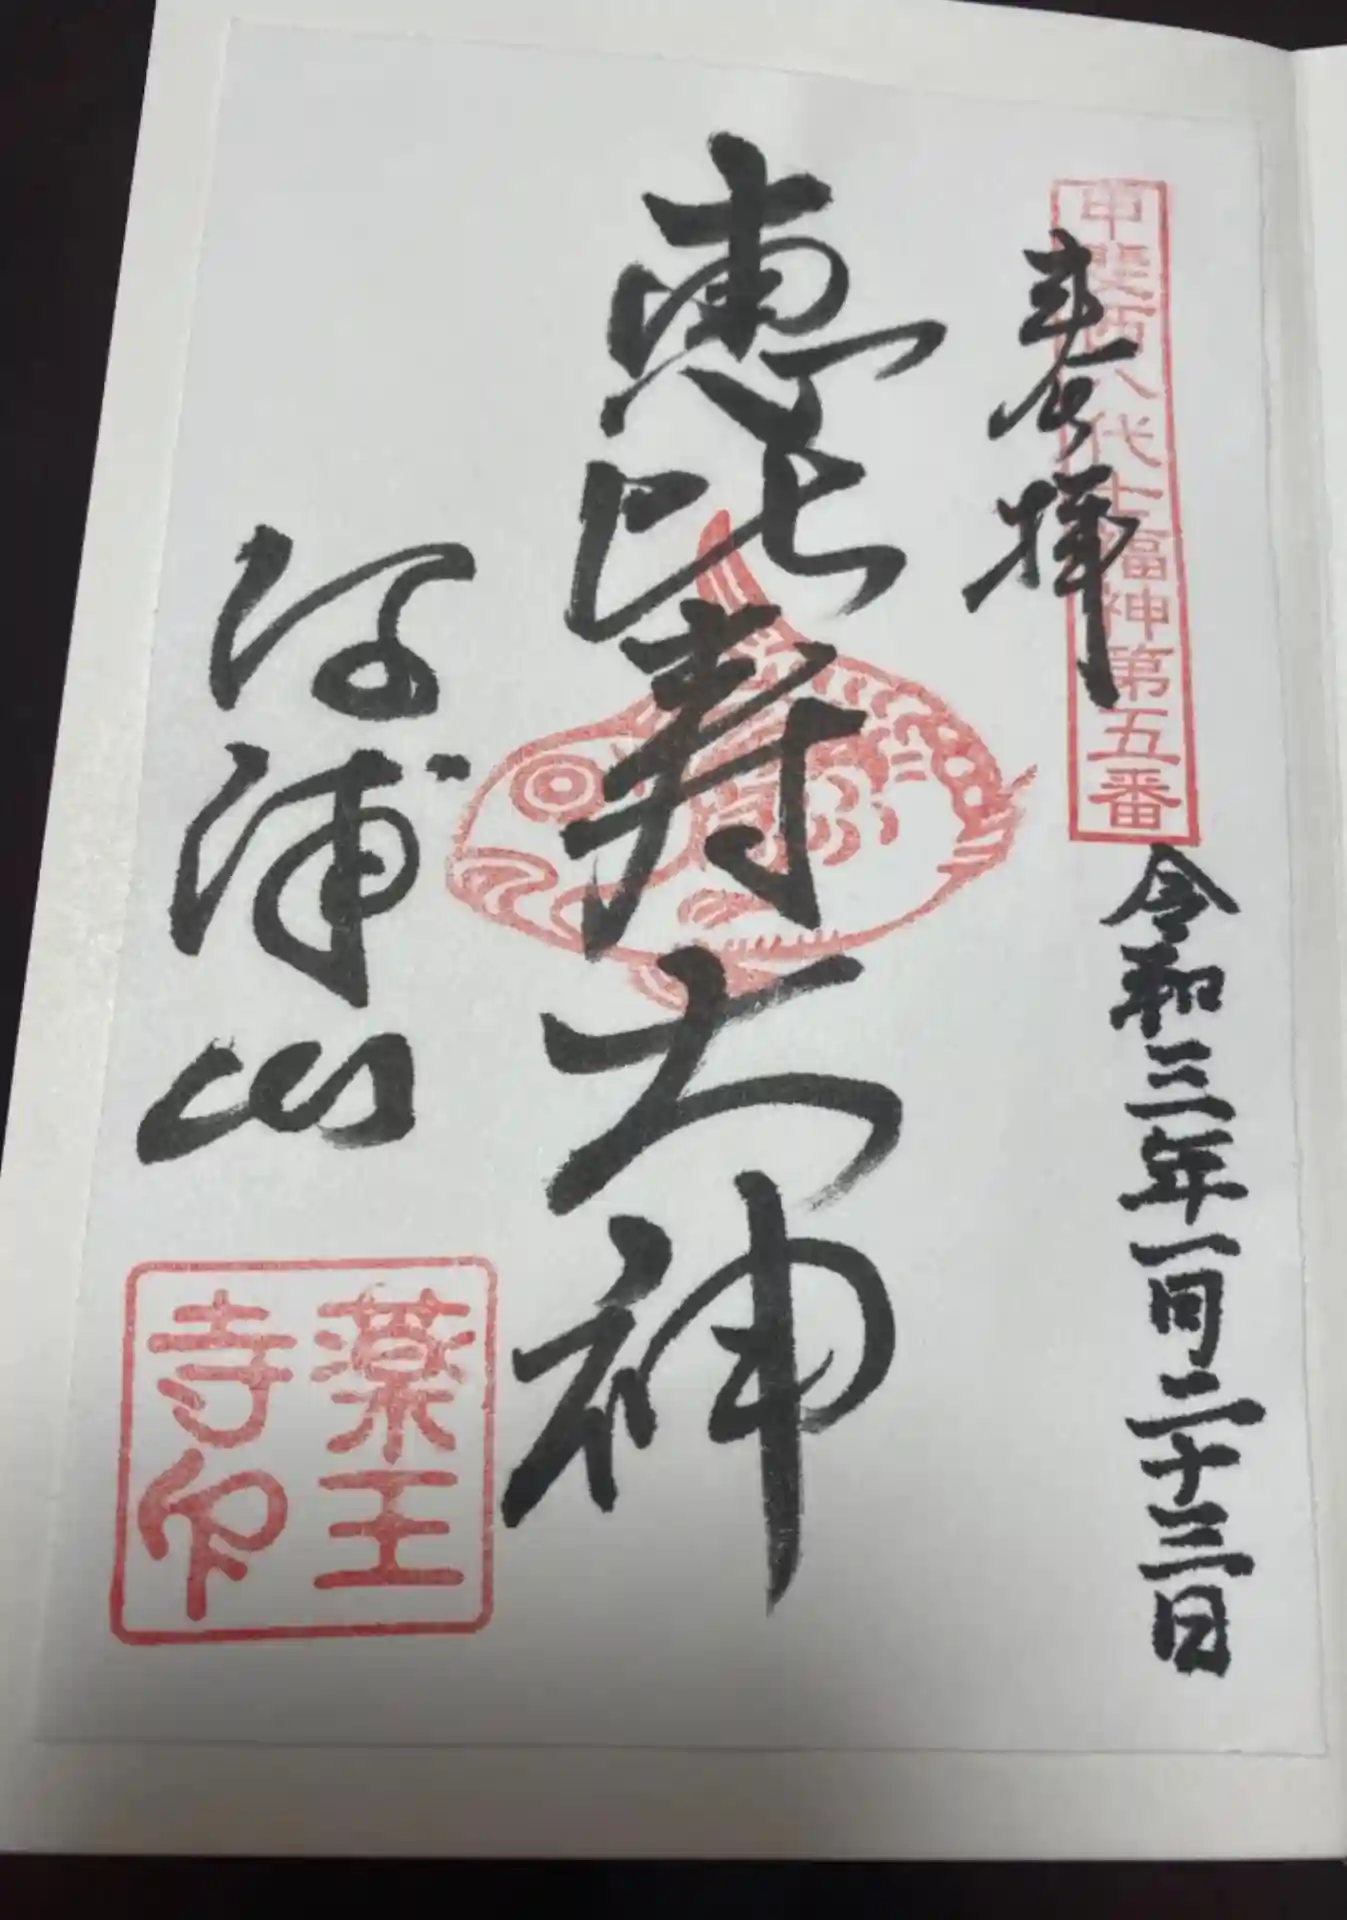 甲斐西八代七福神第五番
奉拝
令和三年一月二十三日
恵比寿大神
河浦山
薬王
寺印